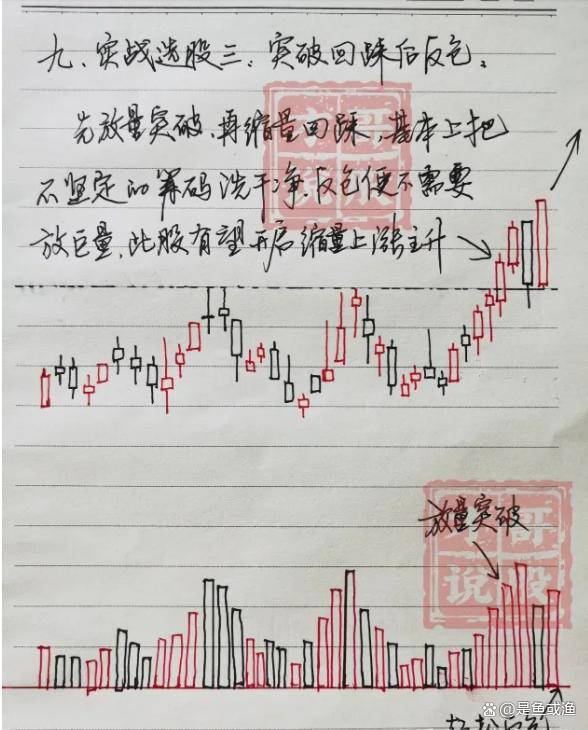 九、实战选股三:突破回踩后反包。
先放量突破,再缩量回踩,基本上把
不坚定的筹码洗干净,反包便不需要
放巨量,此股有望开启缩量上涨主升
放量突破
哥
说股
是鱼或渔